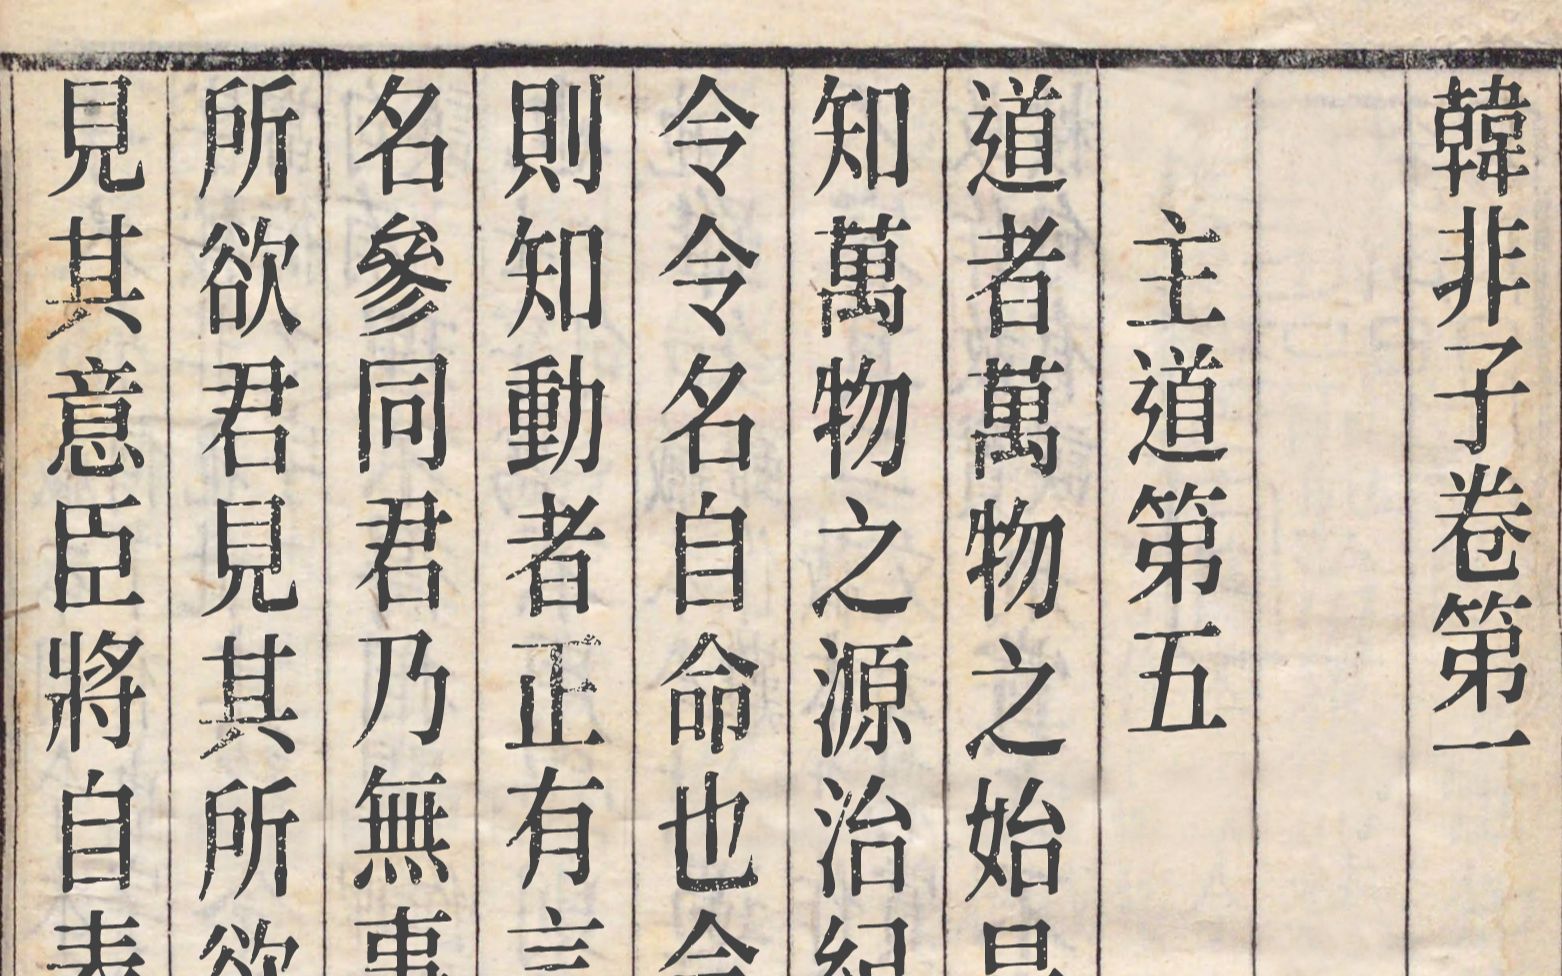 韓非子卷第一
主道第五
道者萬物之始是
知萬物之源治紀
令令名自命也令
則知動者正有言
名參同君乃無事
所欲君見其所欲
見其意臣將自表